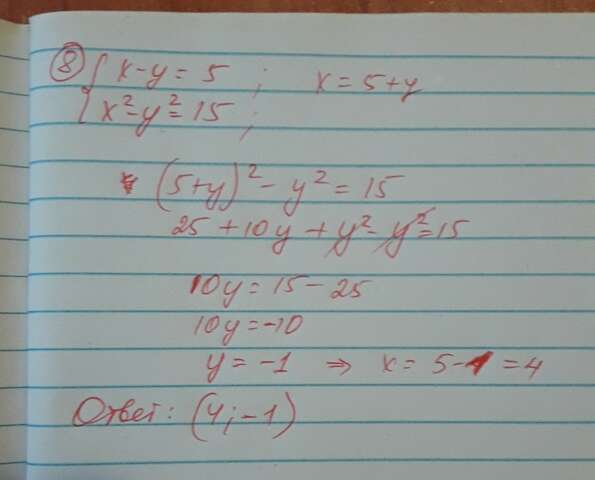 ⑧ { x - y = 5 ; x = 5 + y
x² - y² = 15 ;
(5+y)² - y² = 15
25 + 10y + y² - y² = 15
10y = 15 - 25
10y = -10
y = -1 ⇒ x = 5 - 1 = 4
Ответ: (4; -1)